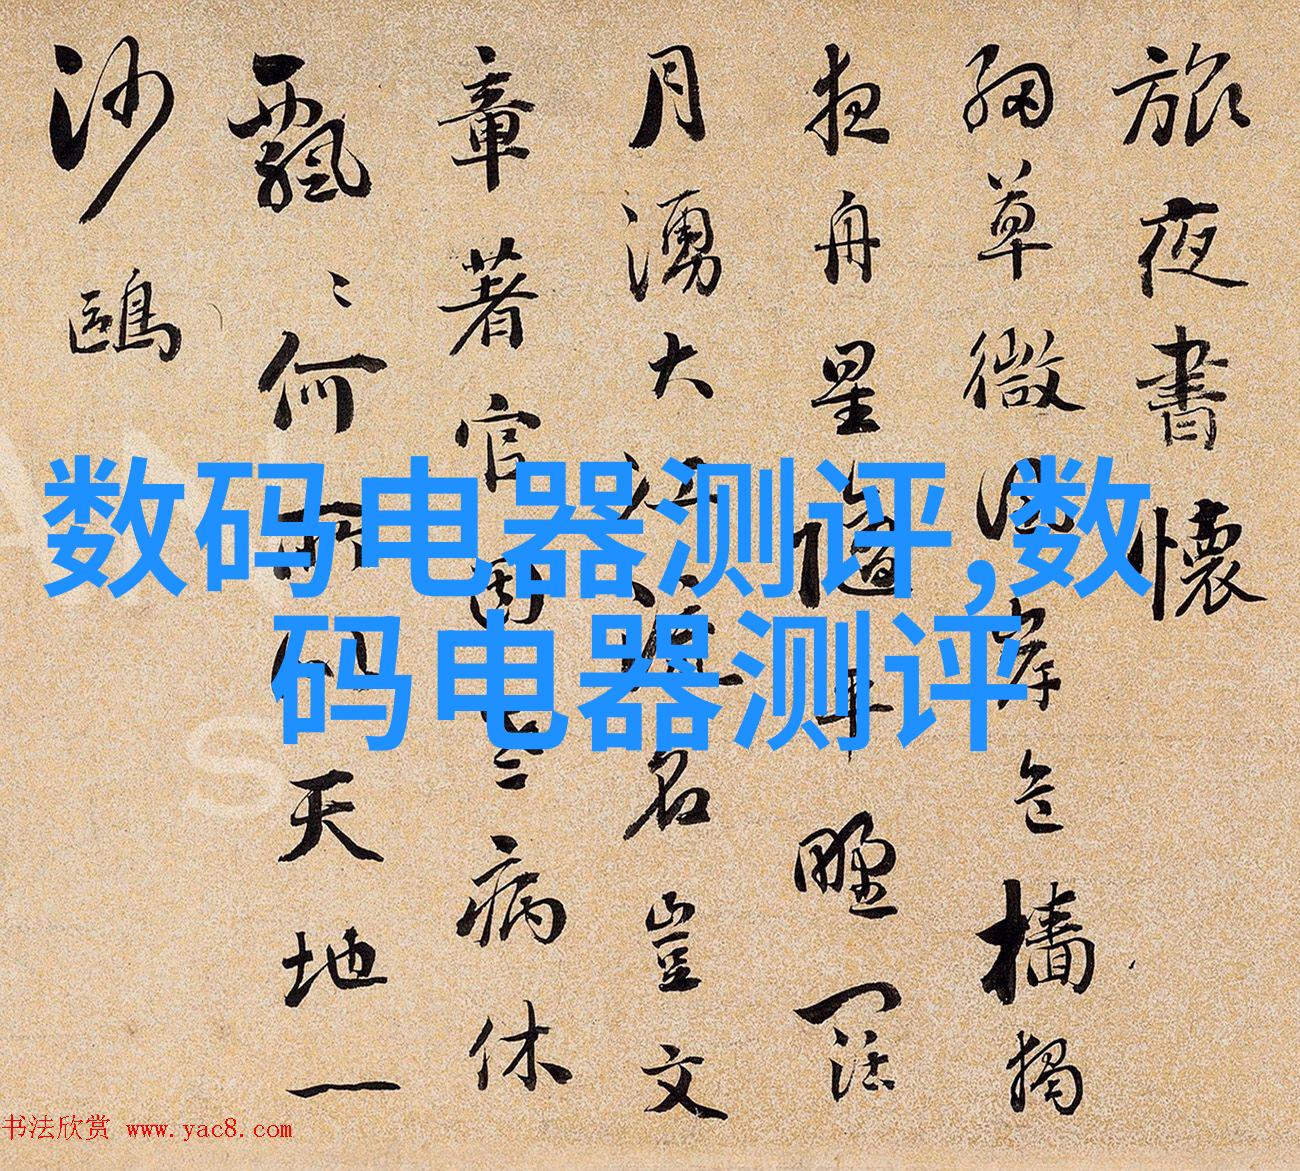 旅夜書懷
細草微風岸危檣獨
夜舟星隨平野闊
月湧大江流名豈文
章著官因老病休
飄〻何所似天地一
沙鷗
数码电器测评,数
码电器测评
书法欣赏 www.yac8.com